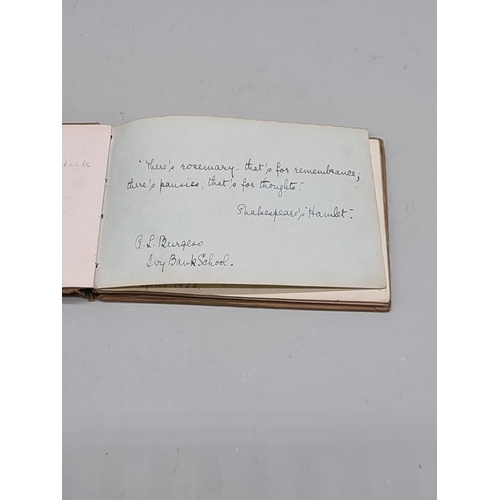 "There's rosemary - that's for remembrance;
there's pansies, that's for thoughts".
Shakespeare's "Hamlet".
A. L. Burgess
Ivy Bank School.